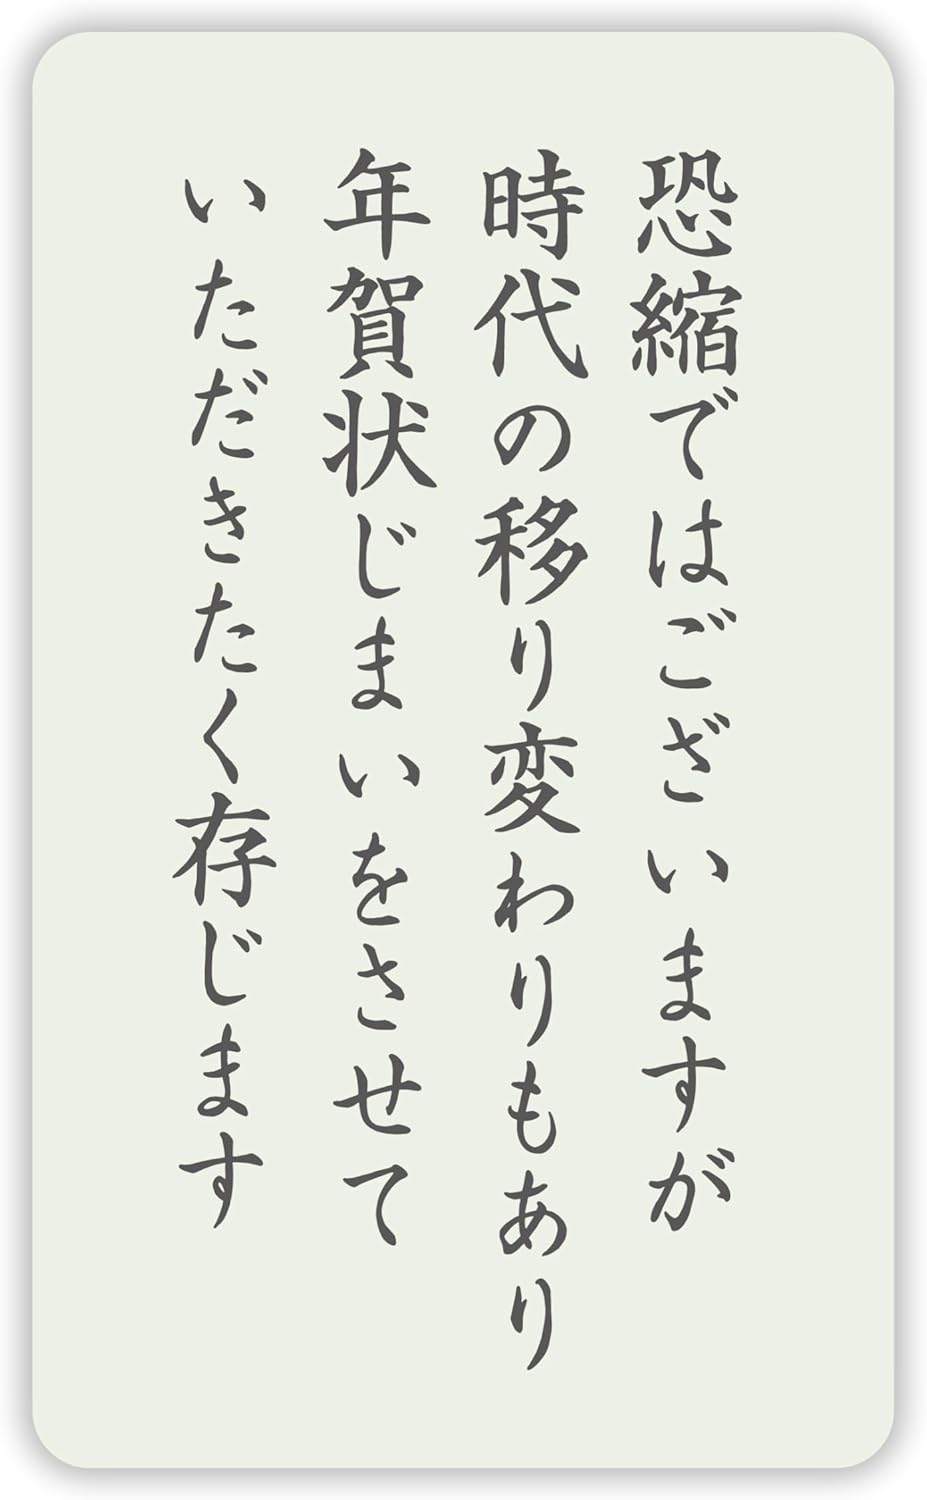 恐縮ではございますが
時代の移り変わりもあり
年賀状じまいをさせて
いただきたく存じます